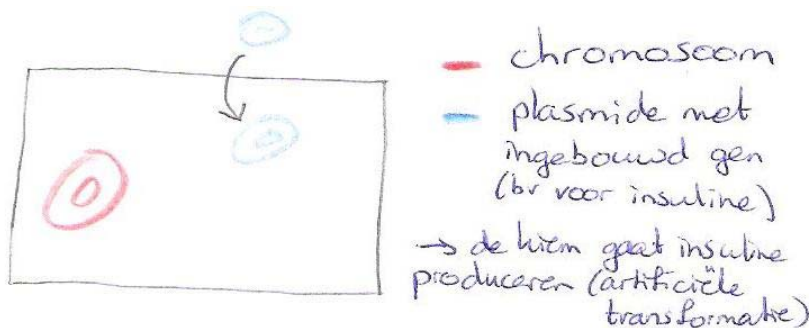 chromosoom
plasmide met
ingebouwd gen
(bv voor insuline)
→ de kiem gaat insuline
produceren (artificiële
transformatie)